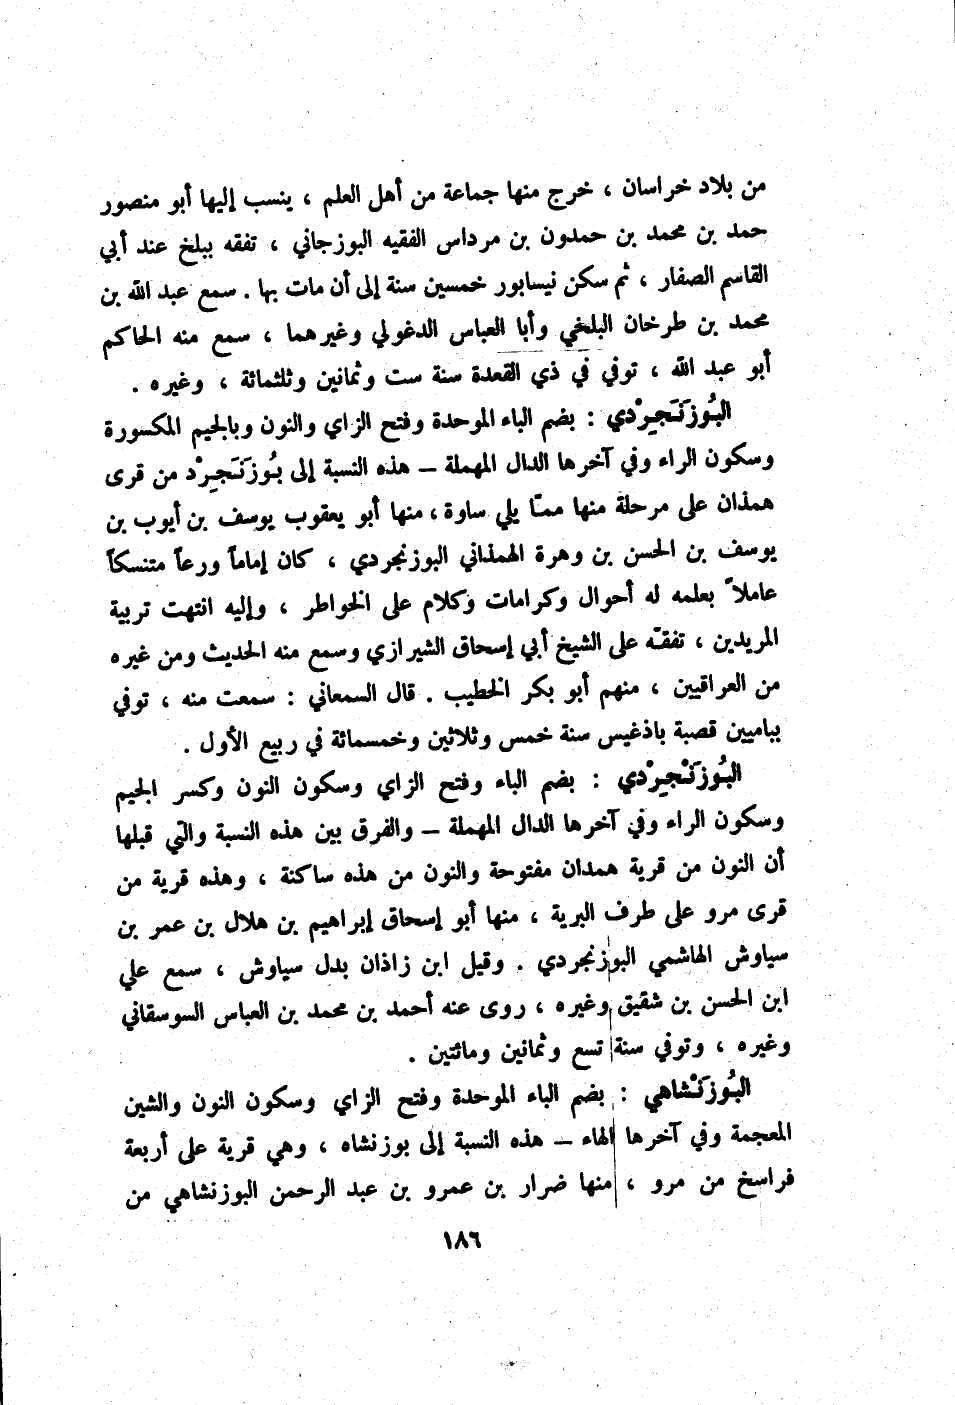 من بلاد خراسان ، خرج منها جماعة من أهل العلم ، ينسب إليها أبو منصور
حمد بن محمد بن حمدون بن مرداس الفقيه البوزجاني ، تفقه ببلخ عند أبي
القاسم الصفار ، ثم سكن نيسابور خمسين سنة إلى أن مات بها . سمع عبد الله بن
محمد بن طرخان البلخي وأبا العباس الدغولي وغيرهما ، سمع منه الحاكم
أبو عبد الله ، توفي في ذي القعدة سنة ست وثمانين وثلثمائة ، وغيره .
البُوزَنَجِرْدي : بضم الباء الموحدة وفتح الزاي والنون وبالجيم المكسورة
وسكون الراء وفي آخرها الدال المهملة – هذه النسبة إلى بُوزَنَجِرْد من قرى
همذان على مرحلة منها ممّا يلي ساوة ، منها أبو يعقوب يوسف بن أيوب بن
يوسف بن الحسن بن وهرة الهمذاني البوزنجردي ، كان إماماً ورعاً متنسكاً
عاملاً بعلمه له أحوال وكرامات وكلام على الخواطر ، وإليه انتهت تربية
المريدين ، تفقّه على الشيخ أبي إسحاق الشيرازي وسمع منه الحديث ومن غيره
من العراقيين ، منهم أبو بكر الخطيب . قال السمعاني : سمعت منه ، توفي
بباميين قصبة باذغيس سنة خمس وثلاثين وخمسمائة في ربيع الأول .
البُوزَنْجِرْدي : بضم الباء وفتح الزاي وسكون النون وكسر الجيم
وسكون الراء وفي آخرها الدال المهملة – والفرق بين هذه النسبة والتي قبلها
أن النون من قرية همدان مفتوحة والنون من هذه ساكنة ، وهذه قرية من
قرى مرو على طرف البرية ، منها أبو إسحاق إبراهيم بن هلال بن عمر بن
سياوش الهاشمي البوزنجردي . وقيل ابن زاذان بدل سياوش ، سمع علي
ابن الحسن بن شقيق وغيره ، روى عنه أحمد بن محمد بن العباس السوسقاني
وغيره ، وتوفي سنة تسع وثمانين ومائتين .
البُوزَنْشاهي : بضم الباء الموحدة وفتح الزاي وسكون النون والشين
المعجمة وفي آخرها الهاء – هذه النسبة إلى بوزنشاه ، وهي قرية على أربعة
فراسخ من مرو ، منها ضرار بن عمرو بن عبد الرحمن البوزنشاهي من
١٨٦